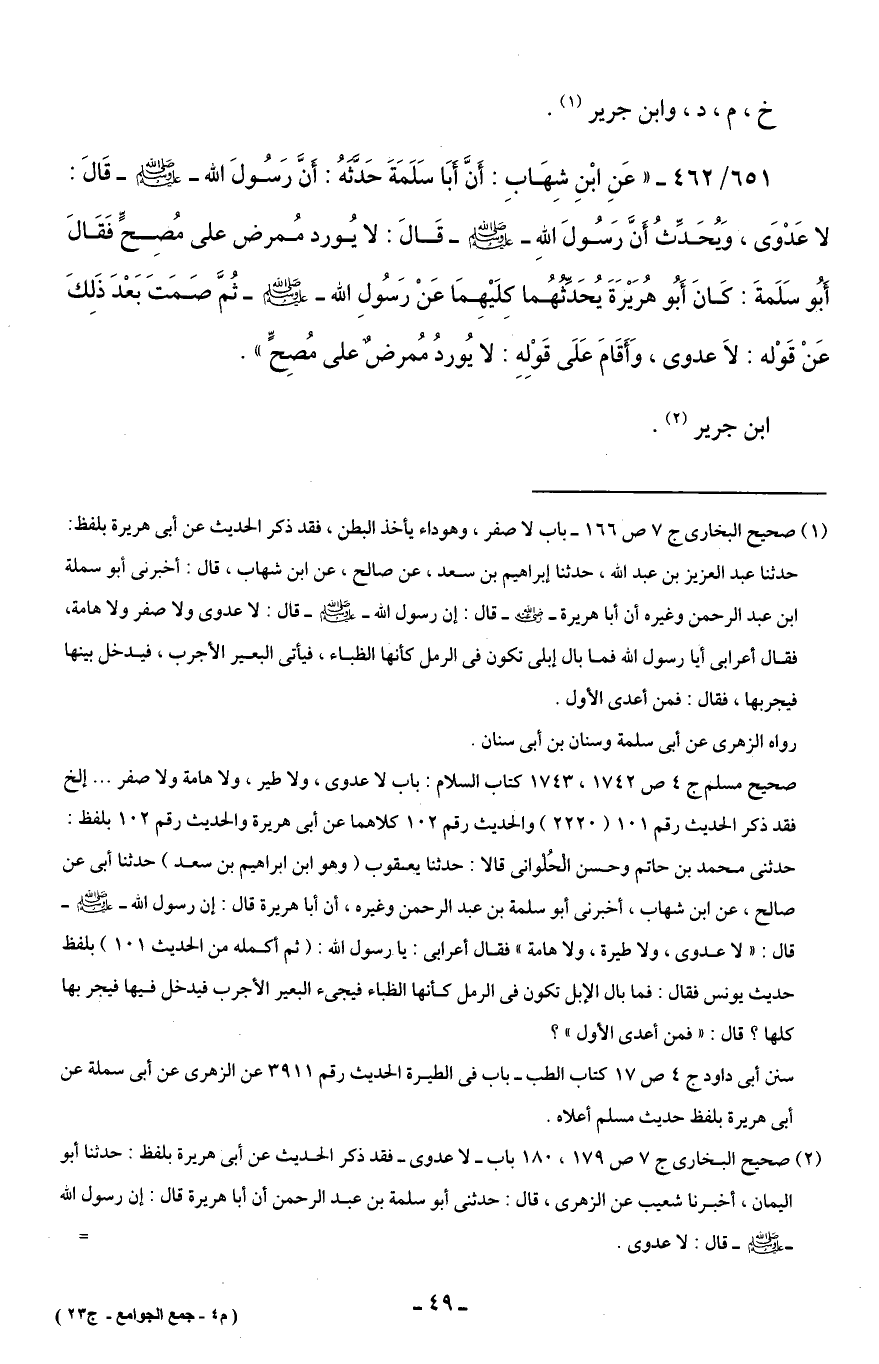 خ ، م ، د ، وابن جرير (١) .
٦٥١/ ٤٦٢ ـ « عَنِ ابْنِ شِهَابٍ : أَنَّ أَبَا سَلَمَةَ حَدَّثَهُ : أَنَّ رَسُولَ الله ـ ﷺ ـ قَالَ :
لا عَدْوَى ، وَيُحَدِّثُ أَنَّ رَسُولَ اللهِ ـ ﷺ ـ قَالَ : لا يُورد مُمرض على مُصِحٍّ فَقَالَ
أَبُو سَلَمةَ : كَانَ أَبُو هُرَيْرَةَ يُحَدِّثُهُما كِلَيْهِمَا عَنْ رَسُولِ الله ـ ﷺ ـ ثُمَّ صَمَتَ بَعْدَ ذَلِكَ
عَنْ قَوْله : لاَ عدوى ، وأَقَامَ عَلَى قَوْلِهِ : لا يُوردُ مُمرضٌ على مُصِحٍّ » .
ابن جرير (٢) .
(١) صحيح البخارى ج ٧ ص ١٦٦ ـ باب لا صفر ، وهوداء يأخذ البطن ، فقد ذكر الحديث عن أبى هريرة بلفظ :
حدثنا عبد العزيز بن عبد الله ، حدثنا إبراهيم بن سعد ، عن صالح ، عن ابن شهاب ، قال : أخبرنى أبو سملة
ابن عبد الرحمن وغيره أن أبا هريرة ـ رضي الله عنه ـ قال : إن رسول الله ـ ﷺ ـ قال : لا عدوى ولا صفر ولا هامة،
فقال أعرابى أيا رسول الله فما بال إبلى تكون فى الرمل كأنها الظباء ، فيأتى البعير الأجرب ، فيدخل بينها
فيجربها ، فقال : فمن أعدى الأول .
رواه الزهرى عن أبى سلمة وسنان بن أبى سنان .
صحيح مسلم ج ٤ ص ١٧٤٢ ، ١٧٤٣ كتاب السلام : باب لا عدوى ، ولا طير ، ولا هامة ولا صفر ... إلخ
فقد ذكر الحديث رقم ١٠١ ( ٢٢٢٠ ) والحديث رقم ١٠٢ كلاهما عن أبى هريرة والحديث رقم ١٠٢ بلفظ :
حدثنى محمد بن حاتم وحسن الْحُلْوانى قالا : حدثنا يعقوب ( وهو ابن ابراهيم بن سعد ) حدثنا أبى عن
صالح ، عن ابن شهاب ، أخبرنى أبو سلمة بن عبد الرحمن وغيره ، أن أبا هريرة قال : إن رسول الله ـ ﷺ ـ
قال : « لا عدوى ، ولا طيرة ، ولا هامة » فقال أعرابى : يا رسول الله : ( ثم أكمله من الحديث ١٠١ ) بلفظ
حديث يونس فقال : فما بال الإبل تكون فى الرمل كأنها الظباء فيجىء البعير الأجرب فيدخل فيها فيجر بها
كلها ؟ قال : « فمن أعدى الأول » ؟
سنن أبى داود ج ٤ ص ١٧ كتاب الطب ـ باب فى الطيرة الحديث رقم ٣٩١١ عن الزهرى عن أبى سملة عن
أبى هريرة بلفظ حديث مسلم أعلاه .
(٢) صحيح البخارى ج ٧ ص ١٧٩ ، ١٨٠ باب ـ لا عدوى ـ فقد ذكر الحديث عن أبى هريرة بلفظ : حدثنا أبو
اليمان ، أخبرنا شعيب عن الزهرى ، قال : حدثنى أبو سلمة بن عبد الرحمن أن أبا هريرة قال : إن رسول الله
ـ ﷺ ـ قال : لا عدوى . =
ـ ٤٩ ـ
( م٤ - جمع الجوامع - ج٢٣ )